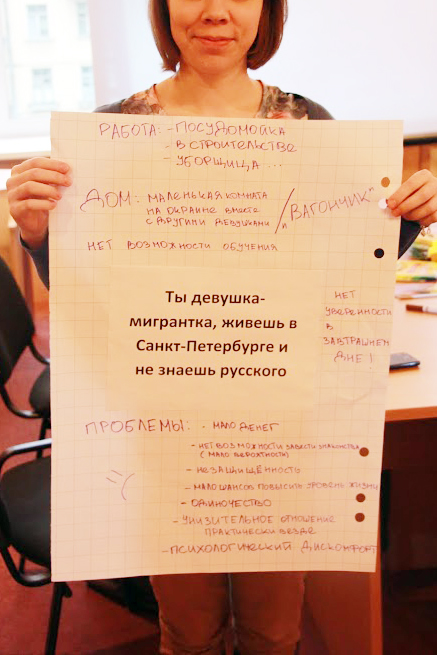 РАБОТА: - ПОСУДОМОЙКА
- В СТРОИТЕЛЬСТВЕ
- УБОРЩИЦА ...
ДОМ: МАЛЕНЬКАЯ КОМНАТА
НА ОКРАИНЕ ВМЕСТЕ
С ДРУГИМИ ДЕВУШКАМИ
/ "ВАГОНЧИК"
НЕТ ВОЗМОЖНОСТИ ОБУЧЕНИЯ
Ты девушка-
мигрантка, живешь в
Санкт-Петербурге и
не знаешь русского
НЕТ
УВЕРЕННОСТИ
В
ЗАВТРАШНЕМ
ДНЕ!
ПРОБЛЕМЫ: - МАЛО ДЕНЕГ
- НЕТ ВОЗМОЖНОСТИ ЗАВЕСТИ ЗНАКОМСТВА
(МАЛО ВЕРОЯТНОСТИ)
- НЕЗАЩИЩЁННОСТЬ
- МАЛО ШАНСОВ ПОВЫСИТЬ УРОВЕНЬ ЖИЗНИ
- ОДИНОЧЕСТВО
- УНИЗИТЕЛЬНОЕ ОТНОШЕНИЕ
ПРАКТИЧЕСКИ ВЕЗДЕ
- ПСИХОЛОГИЧЕСКИЙ ДИСКОМФОРТ